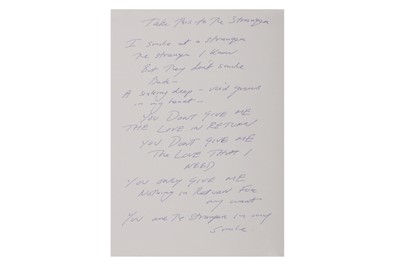 Take This to The Stranger
I smile at a stranger
The stranger I know
But They don't smile
Back –
A sinking deep – void
in my heart –
YOU DONT GIVE ME
THE LOVE IN RETURN
YOU DONT GIVE ME
The LOVE THAT I
NEED
YOU only GIVE ME
Nothing in Return For
my want
You are The Stranger in my
Smile.